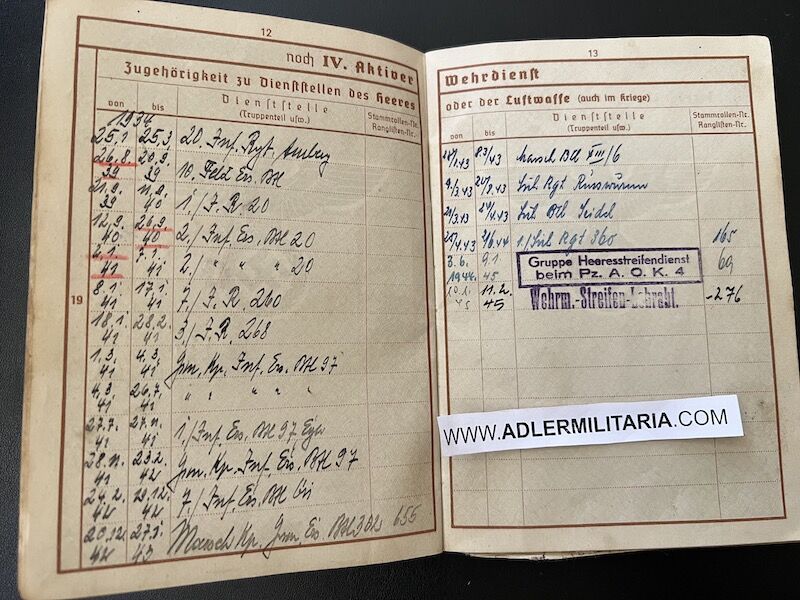 12
noch IV. Aktiver
Zugehörigkeit zu Dienststellen des Heeres
von bis Dienststelle (Truppenteil usw.) Stammrollen-Nr. Ranglisten-Nr.
1934
25.1. 25.3. 20. Inf. Rgt. Amberg
26.8. 39 20.9. 39 10. Feld Ers. Btl
21.9. 39 11.9. 40 1./ J.R. 20
12.9. 40 26.9. 40 2./ Inf. Ers. Btl 20
41 7.1. 41 2./ " " " 20
8.1. 41 17.1. 41 7./ J.R. 260
18.1. 41 28.2. 41 3./ J.R. 268
1.3. 41 4.3. 41 Gen. Kp. Inf. Ers. Btl 97
4.3. 41 26.7. 41 " " " "
27.7. 41 27.11. 41 1./ Inf. Ers. Btl 97,
28.11. 41 23.2. 42 Gen. Kp. Inf. Ers. Btl 97
24.2. 42 19.12. 42 7./ Inf. Ers. Btl
20.12. 42 27.1. 43 Marsch Kp. Gren. Ers. Btl 655
19
13
Wehrdienst
oder der Luftwaffe (auch im Kriege)
von bis Dienststelle (Truppenteil usw.) Stammrollen-Nr. Ranglisten-Nr.
43 43 Marsch Btl XIII/6
43 43 Rgt
43 43 Btl Seidl
43 44 1./ Rgt 360 165
3.6. 1944 9.1. 45 Gruppe Heeresstreifendienst 69
beim Pz. A. O. K. 4
10.1. 45 11.2. 45 Wehrm.-Streifen-Lehrabt. -276
WWW.ADLERMILITARIA.COM